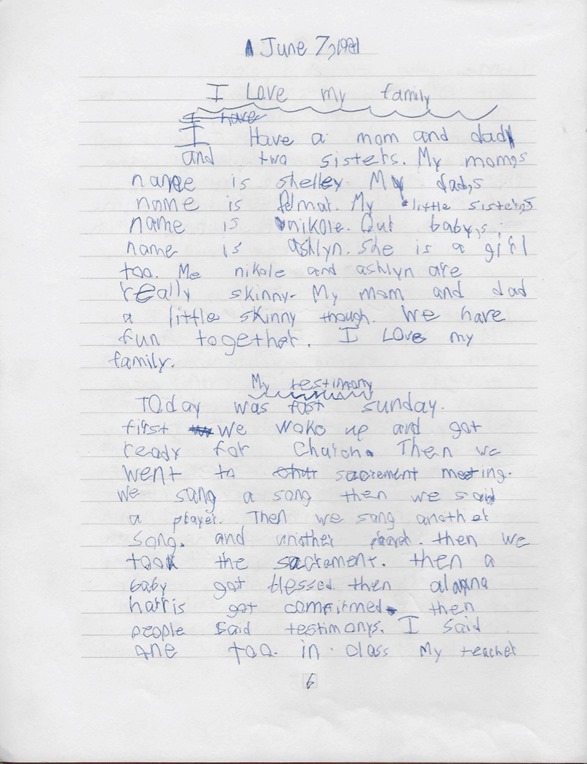 June 7, 1981
I Love my family
I have
I Have a mom and dad
and two sisters. My mom,s
name is shelley. My dad,s
name is Delmar. My little sister,s
name is nikole. Our baby,s
name is ashlyn. She is a girl
too. Me nikole and ashlyn are
really skinny. My mom and dad
a little skinny though. We have
fun together. I Love my
family.
My testimony
Today was fast sunday.
first we woke up and got
ready for Church. Then we
went to chur sacrement meeting.
we sang a song then we said
a prayer. Then we sang another
song. and another prayer. then we
took the sacrament. then a
baby got blessed then alanna
harris got comfirmed then
people said testimonys. I said
one too. in class My teacher
6